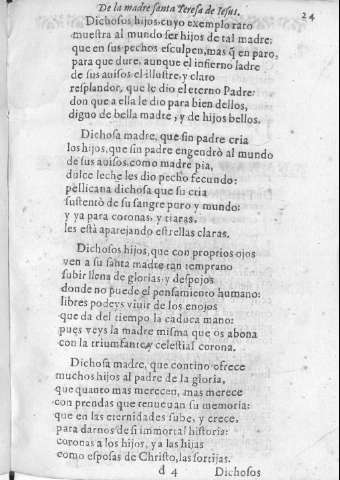 De la madre santa Teresa de Iesus.
24
Dichosos hijos, cuyo exemplo raro
muestra al mundo ser hijos de tal madre:
que en sus pechos esculpen, mas q̃ en paro,
para que dure, aunque el infierno ladre
de sus auisos el illustre, y claro
resplandor, que le dio el eterno Padre:
don que a ella le dio para bien dellos,
digno de bella madre, y de hijos bellos.
Dichosa madre, que sin padre cria
los hijos, que sin padre engendrò al mundo
de sus auisos, como madre pia,
dulce leche les dio pecho fecundo:
pellicana dichosa que su cria
sustentò de su sangre puro y mundo:
y ya para coronas, y tiaras.
les està aparejando estrellas claras.
Dichosos hijos, que con proprios ojos
ven a su santa madre tan temprano
subir llena de glorias, y despojos
donde no puede el pensamiento humano:
libres podeys viuir de los enojos
que da del tiempo la caduca mano:
pues veys la madre misma que os abona
con la triumfante, y celestial corona.
Dichosa madre, que contino ofrece
muchos hijos al padre de la gloria,
que quanto mas merecen, mas merece
con prendas que renueuan su memoria:
que en las eternidades sube, y crece,
para darnos de si immortal historia:
coronas a los hijos, y a las hijas
como esposas de Christo, las sortijas.
d 4 Dichosos